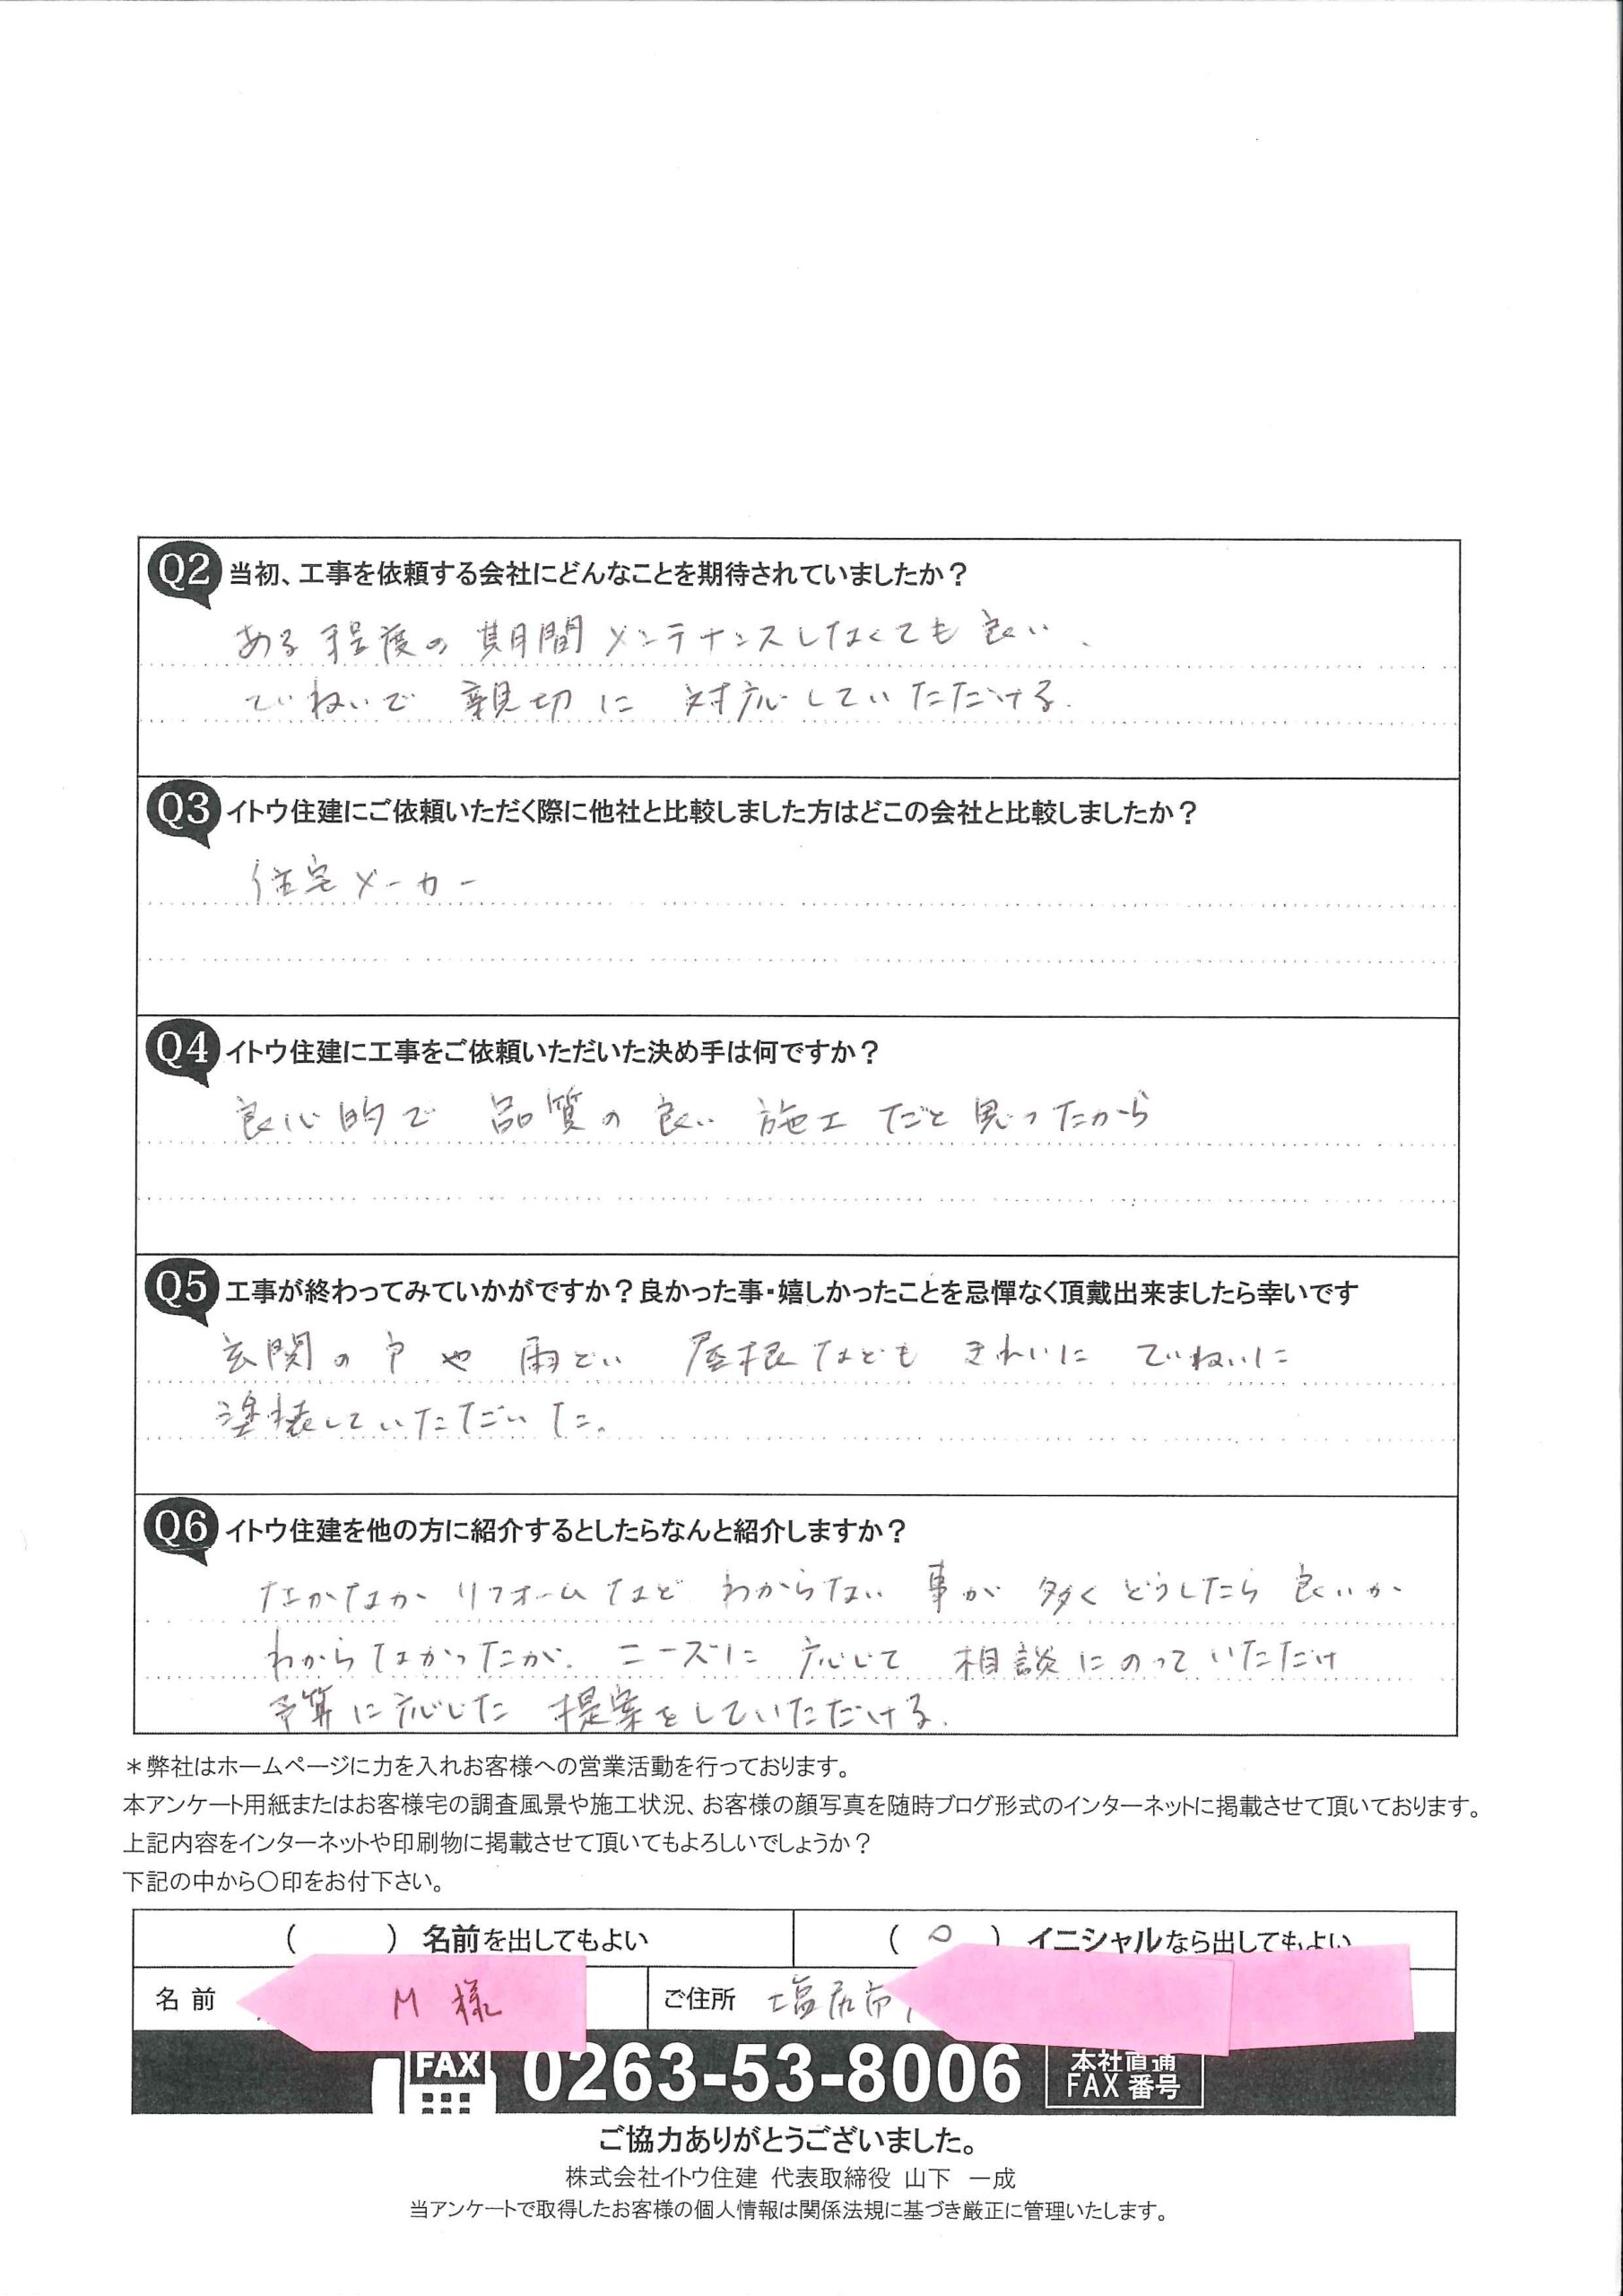 Q2 当初、工事を依頼する会社にどんなことを期待されていましたか？
ある程度の期間メンテナンスしなくても良い、
ていねいで 親切に 対応していただける.
Q3 イトウ住建にご依頼いただく際に他社と比較しました方はどこの会社と比較しましたか？
住宅メーカー
Q4 イトウ住建に工事をご依頼いただいた決め手は何ですか？
良心的で 品質の良い 施工 だと思ったから
Q5 工事が終わってみていかがですか？良かった事・嬉しかったことを忌憚なく頂戴出来ましたら幸いです
玄関の戸や 雨どい 屋根なども きれいに ていねいに
塗装していただいた。
Q6 イトウ住建を他の方に紹介するとしたらなんと紹介しますか？
なかなか リフォームなど わからない 事が 多く どうしたら 良いか
わからなかったが. ニーズに 応じて 相談にのっていただけ
予算に応じた 提案をしていただける.
＊弊社はホームページに力を入れお客様への営業活動を行っております。
本アンケート用紙またはお客様宅の調査風景や施工状況、お客様の顔写真を随時ブログ形式のインターネットに掲載させて頂いております。
上記内容をインターネットや印刷物に掲載させて頂いてもよろしいでしょうか？
下記の中から〇印をお付下さい。
（ ）名前を出してもよい （ ○ ）イニシャルなら出してもよい
名前 M 様 ご住所 塩尻市
FAX 0263-53-8006 本社直通 FAX 番号
ご協力ありがとうございました。
株式会社イトウ住建 代表取締役 山下 一成
当アンケートで取得したお客様の個人情報は関係法規に基づき厳正に管理いたします。